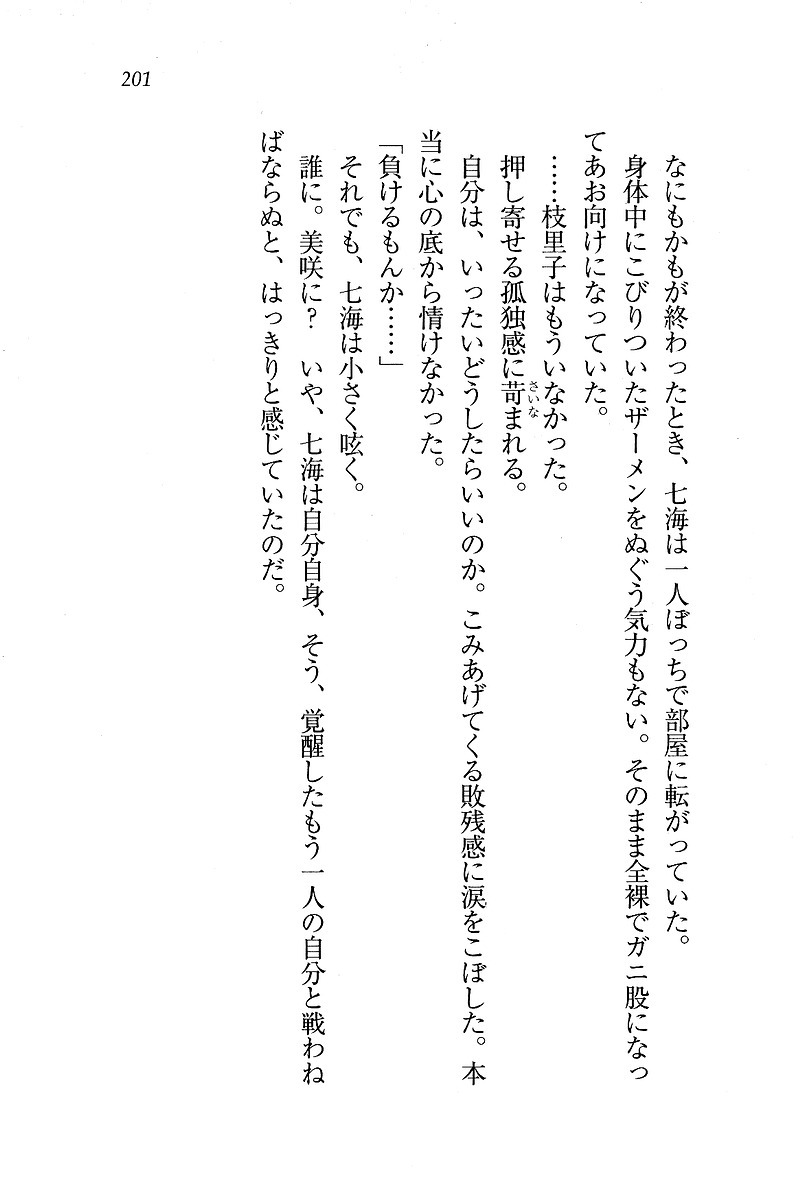 201
なにもかもが終わったとき、七海は一人ぼっちで部屋に転がっていた。
身体中にこびりついたザーメンをぬぐう気力もない。そのまま全裸でガニ股になっ
てあお向けになっていた。
……枝里子はもういなかった。
押し寄せる孤独感に苛まれる。
さいな
自分は、いったいどうしたらいいのか。こみあげてくる敗残感に涙をこぼした。本
当に心の底から情けなかった。
「負けるもんか……」
それでも、七海は小さく呟く。
誰に。美咲に？　いや、七海は自分自身、そう、覚醒したもう一人の自分と戦わね
ばならぬと、はっきりと感じていたのだ。